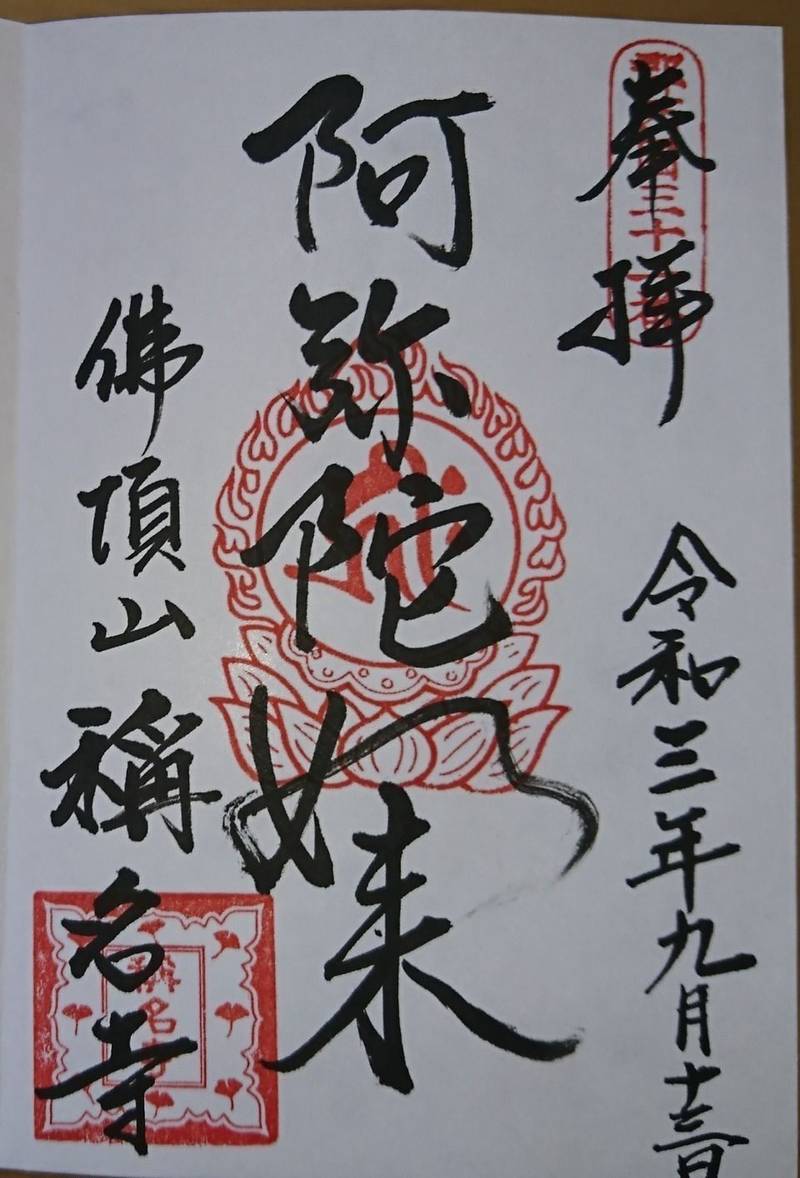 奉拝
令和三年九月十三日
阿弥陀如来
佛頂山 稱名寺
稱名寺